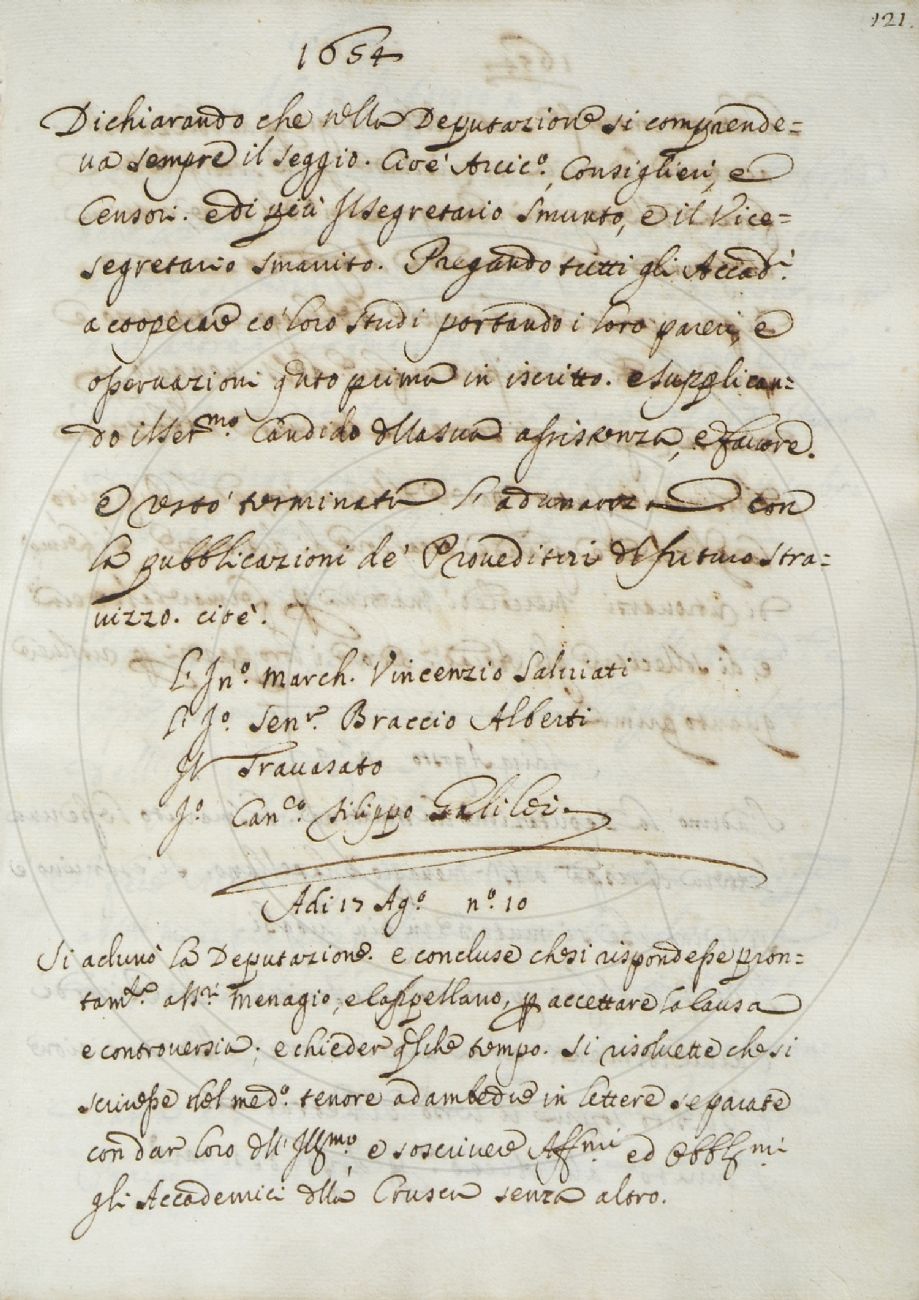 121.
1654
Dichiarando che nella Deputazione si comprende=
va sempre il seggio. Cioè Arcic.º, Consiglieri, e
Censori. e di più Il segretario Smunto, e il Vice=
segretario Smarrito. Pregando tutti gli Accad.i
a cooperare co' loro studi portando i loro pareri, e
osservazioni qñto prima in iscritto. e supplican=
do il Ser.mo Candido dlla sua assistenza, e favore.
e restò terminata l'adunanza con
la pubblicazioni de' Proveditori dl futuro stra=
vizzo. cioè.
L' In.º March. Vincenzio Salviati
L' I.º Sen.r Braccio Alberti
Il Travasato
I.º Can.co Filippo Galilei.
Adi 17 Ag.º n.º 10
Si adunò la Deputazione. e concluse che si rispondesse pron=
tam.te a SS.ri Menagio, e Cappellano, p accettare la causa
e controversia; e chieder qlche tempo. Si risolvette che si
scrivesse nel med.º tenore ad ambedue in lettere separate
con dar loro dll' Ill.mo e soscrivere Aff.mi ed Obbl.mi
gli Accademici dlla Crusca senza altro.